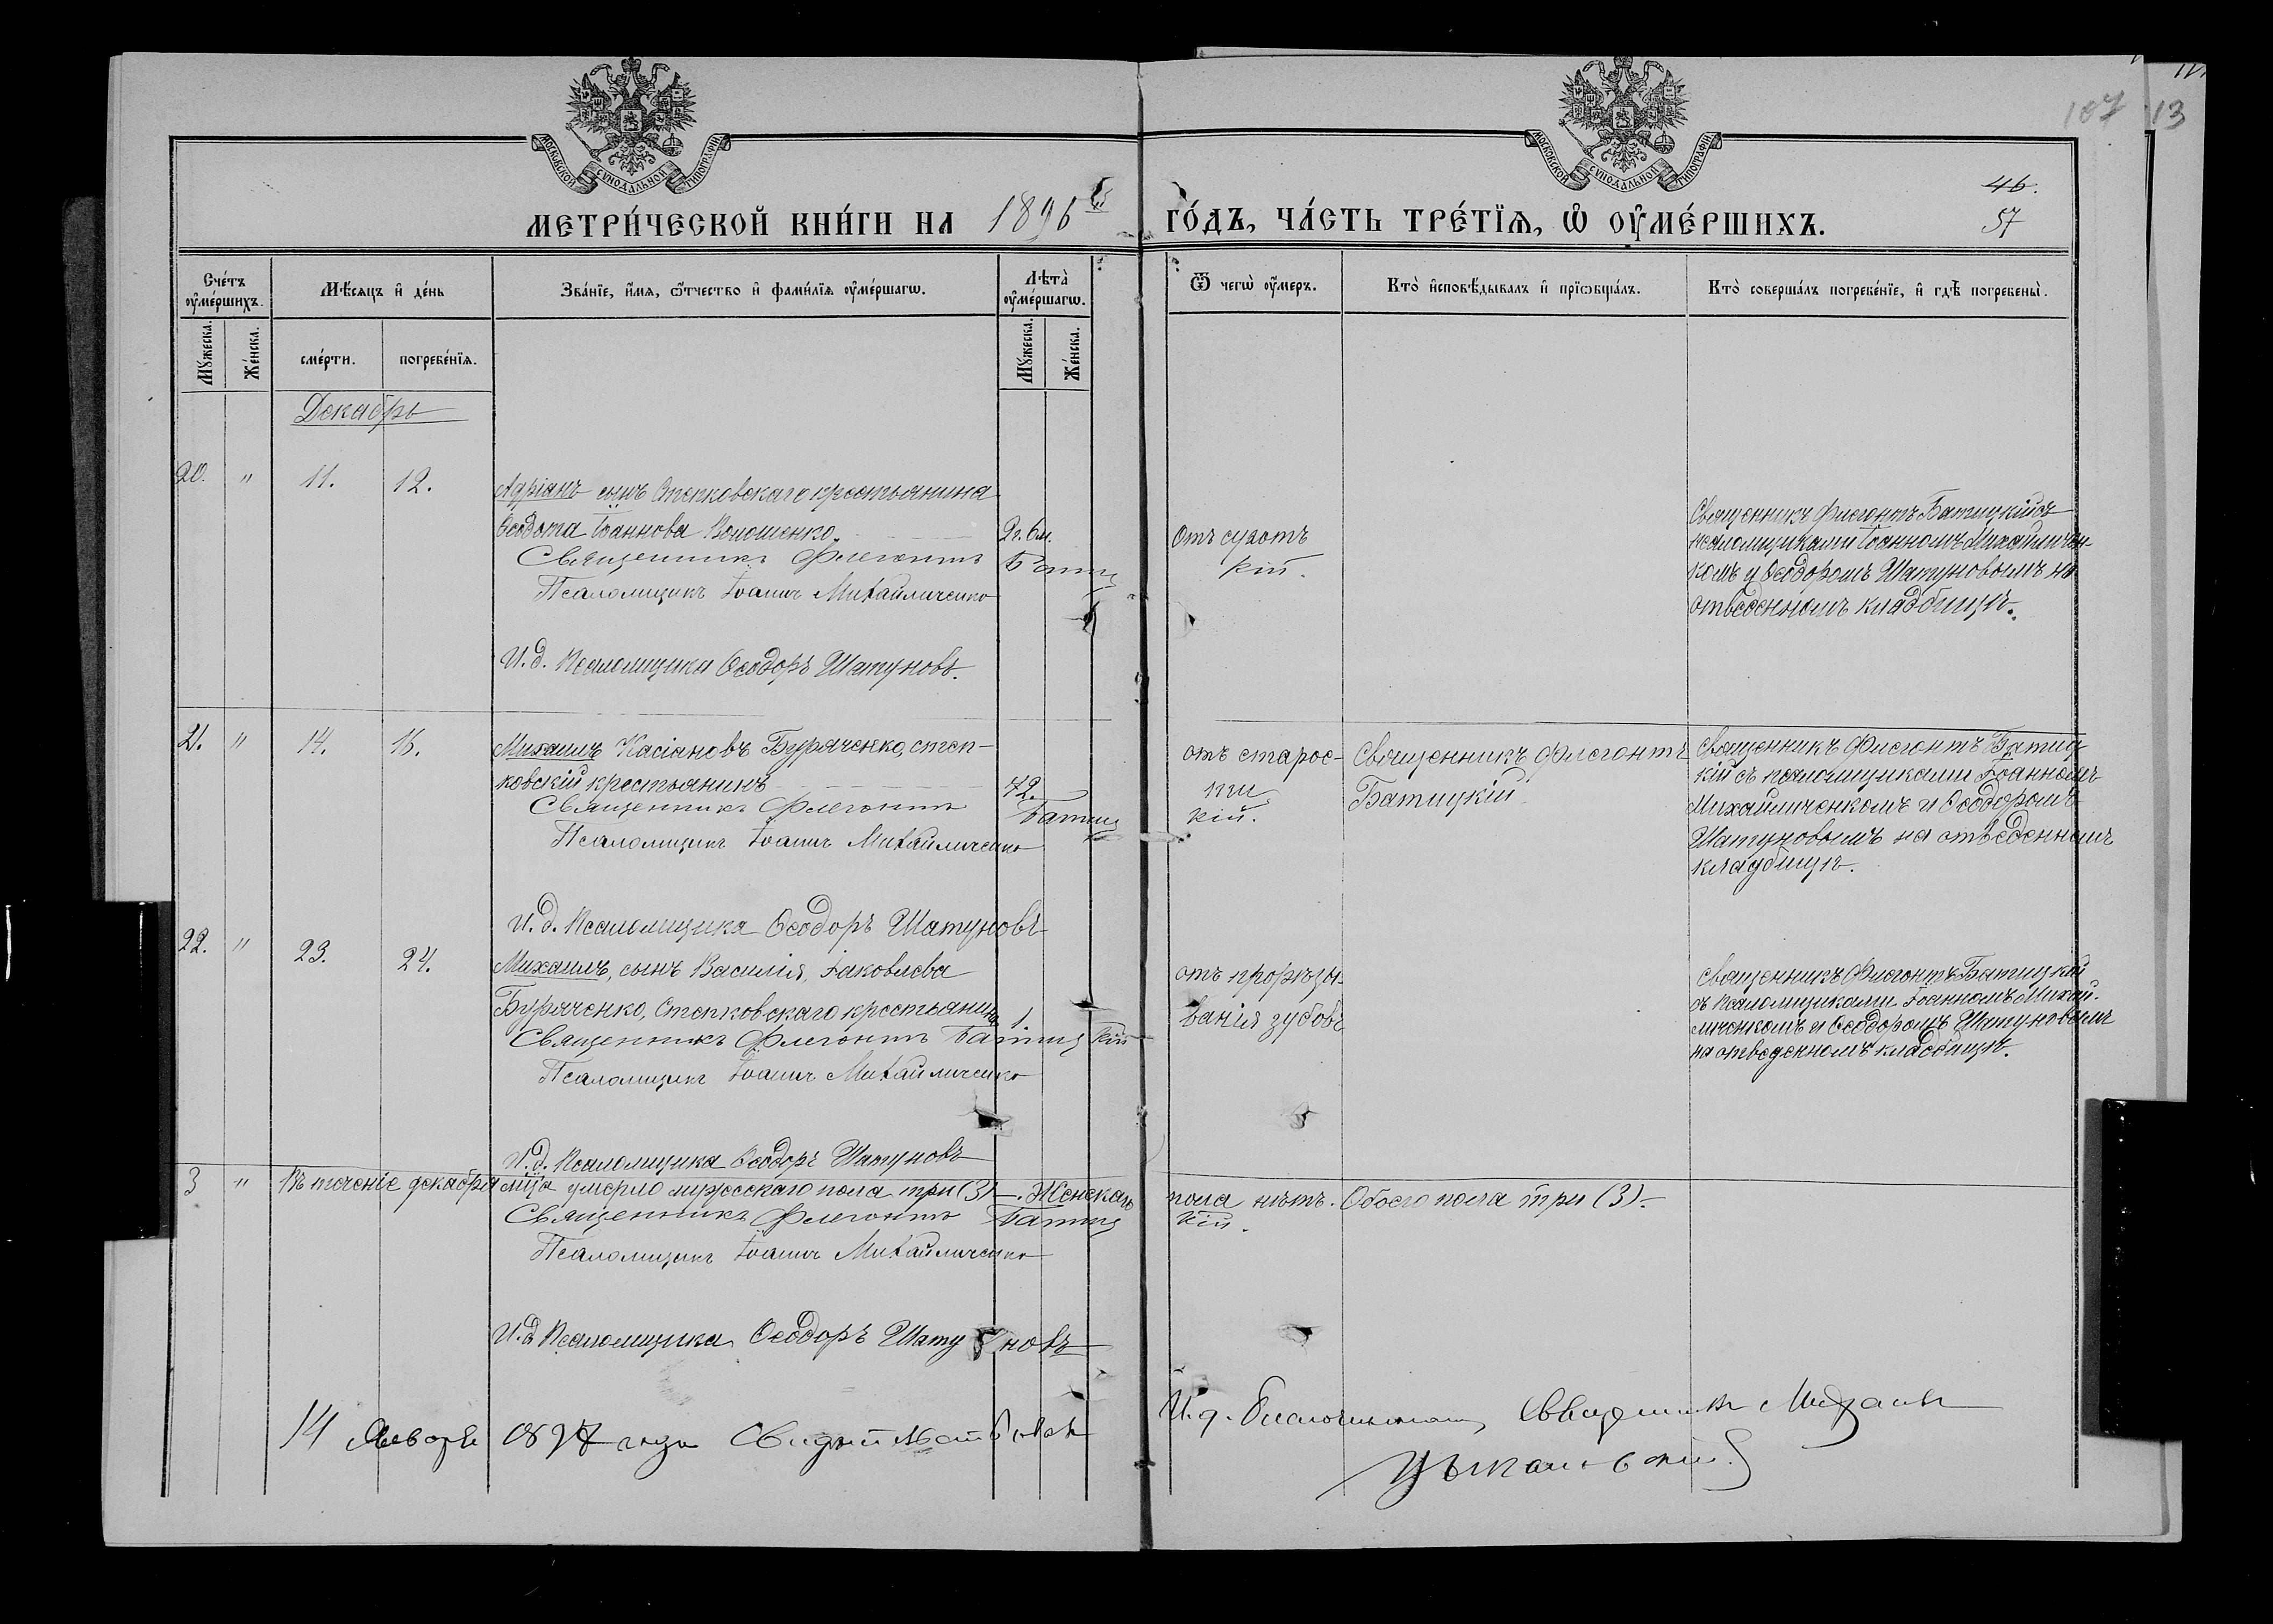 107 13
МОСКОВСКОЙ СѴНОДАЛЬНОЙ ТИПОГРАФІИ
МОСКОВСКОЙ СѴНОДАЛЬНОЙ ТИПОГРАФІИ
46.
57
МЕТРИ́ЧЕСКОЙ КНИ́ГИ НА 1896й ГО́ДЪ, ЧА́СТЬ ТРЕ́ТЇѦ, Ѡ҆ ОУ҆МЕ́РШИХЪ.
Сче́тъ оу҆ме́ршихъ.
Мѣ́сѧцъ и҆ де́нь
Зва́нїе, и҆́мѧ, ѻ҆́тчество и҆ фами́лїѧ оу҆ме́ршагѡ.
Лѣта̀ оу҆ме́ршагѡ.
Ѿ чегѡ̀ оу҆́меръ.
Кто̀ и҆сповѣ́дывалъ и҆ прїѡбща́лъ.
Кто̀ соверша́лъ погребе́нїе, и҆ гдѣ̀ погребены̀.
Мꙋ́жеска.
Же́нска.
сме́рти.
погребе́нїѧ.
Мꙋ́жеска.
Же́нска.
Декабрь
20. " 11. 12.
Адріанъ сынъ Степковскаго крестьянина
Ѳеодота Іоаннова Волошенко. 2г. 6м.
Священникъ Флегонтъ Батицкій.
Псаломщикъ Іоаннъ Михайличенко
И. д. Псаломщика Ѳеодоръ Шатуновъ.
Отъ сухотъ
Священникъ Флегонтъ Батицкій съ
псаломщиками Іоанномъ Михайличен-
комъ и Ѳеодоромъ Шатуновымъ на
отведенномъ кладбищѣ.
21. " 14. 16.
Михаилъ Касіановъ Буряченко, степ-
ковскій крестьянинъ 72.
Священникъ Флегонтъ Батицкій.
Псаломщикъ Іоаннъ Михайличенко
И. д. Псаломщика Ѳеодоръ Шатуновъ
отъ старос-
ти
Священникъ Флегонтъ
Батицкій
Священникъ Флегонтъ Батиц-
кій съ псаломщиками Іоанномъ
Михайличенкомъ и Ѳеодоромъ
Шатуновымъ на отведенномъ
кладбищѣ.
22. " 23. 24.
Михаилъ, сынъ Василія, Іаковлева
Буряченко, Степковскаго крестьянина 1.
Священникъ Флегонтъ Батицкій
Псаломщикъ Іоаннъ Михайличенко
И. д. Псаломщика Ѳеодоръ Шатуновъ
отъ прорѣзы-
ванія зубовъ
Священникъ Флегонтъ Батицкій
съ Псаломщиками Іоанномъ Михай-
личенкомъ и Ѳеодоромъ Шатуновымъ
на отведенномъ кладбищѣ.
3 " Въ теченіе декабря м̃ца умерло мужескаго пола три (3) —. Женскаго пола нѣтъ. Обоего пола три (3).
Священникъ Флегонтъ Батицкій.
Псаломщикъ Іоаннъ Михайличенко
И. д. Псаломщика Ѳеодоръ Шатуновъ
14 Января 1897 года Свидѣтельствовалъ И. д. Благочиннаго, Священникъ Михаилъ